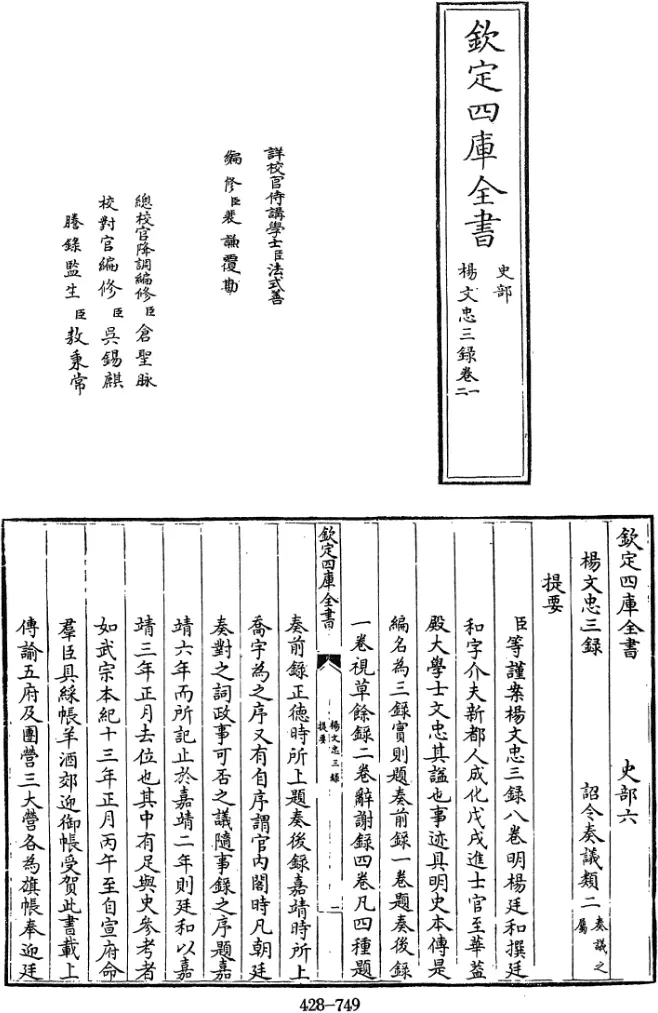 欽定四庫全書
史部
楊文忠三錄卷一
二
詳校官侍講學士臣法式善
編修臣裴謙覆勘
總校官降調編修臣倉聖脉
校對官編修臣吳錫麒
謄錄監生臣敖秉常
欽定四庫全書
史部六
楊文忠三録
詔令奏議類二
奏議之
屬
提要
臣等謹案楊文忠三録八卷明楊廷和撰廷
和字介夫新都人成化戊戌進士官至華蓋
殿大學士文忠其諡也事迹具明史本傳是
編名為三録實則題奏前録一卷題奏後録
一卷視草餘録二卷辭謝録四卷凡四種題
欽定四庫全書
楊文忠三録
提要
一
奏前録正德時所上題奏後録嘉靖時所上
喬宇為之序又有自序謂官内閣時凡朝廷
奏對之詞政事可否之議隨事録之序題嘉
靖六年而所記止於嘉靖二年則廷和以嘉
靖三年正月去位也其中有足與史參考者
如武宗本紀十三年正月丙午至自宣府命
羣臣具綵帳羊酒郊迎御帳受賀此書載上
傳諭五府及團營三大營各為旗帳奉迎廷
428-749